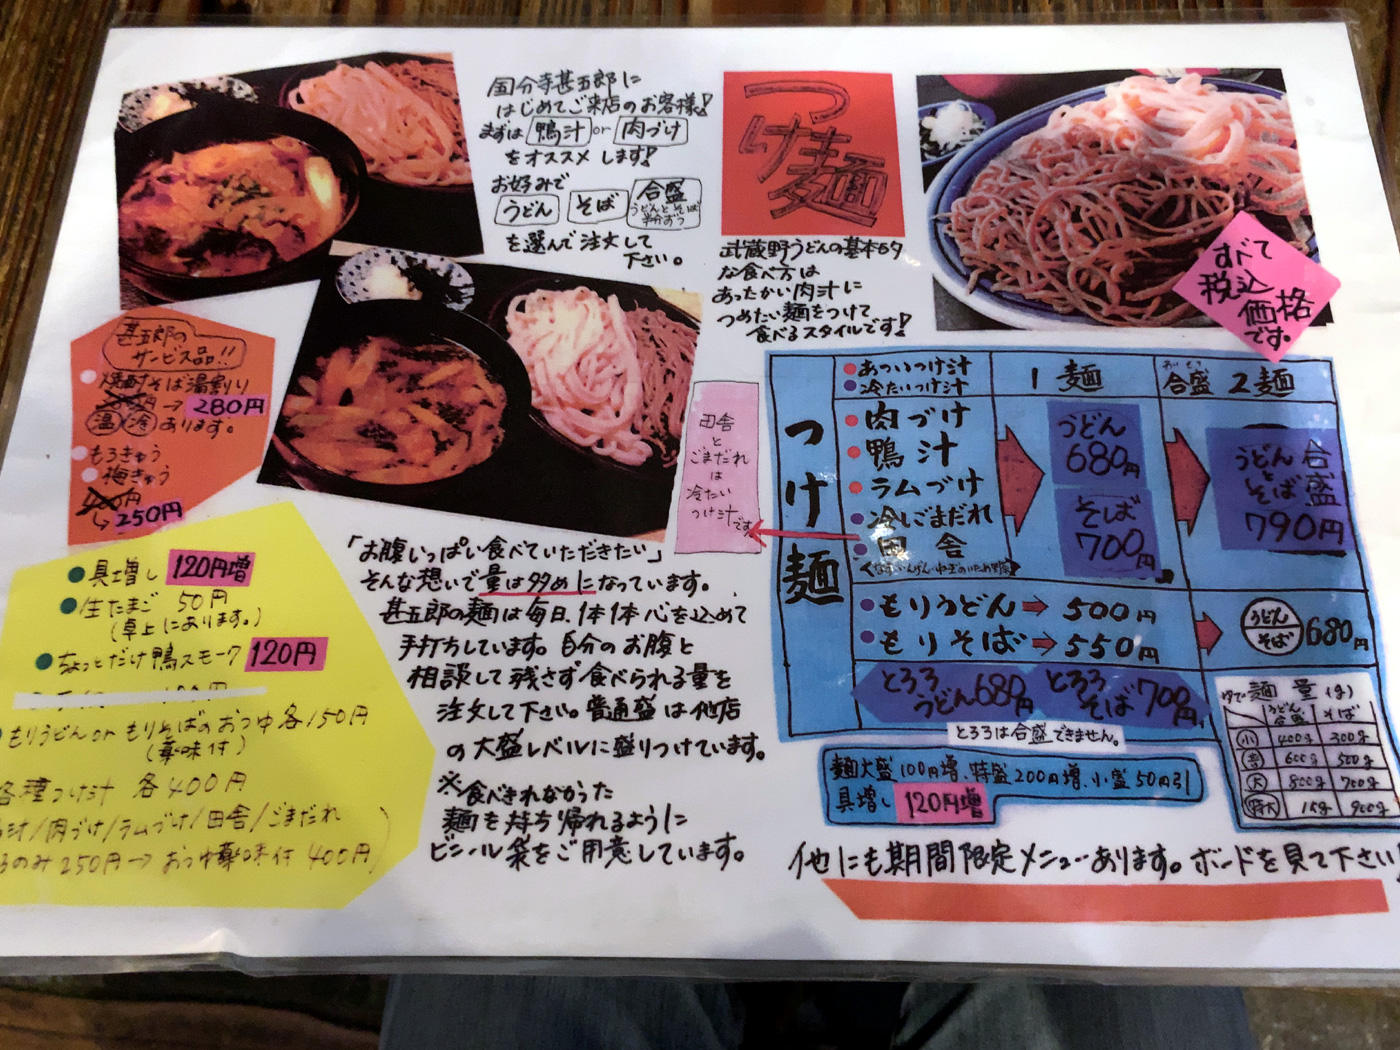 国分寺甚五郎に
はじめてご来店のお客様!
まずは 鴨汁 or 肉づけ
をオススメします!
お好みで
うどん そば 合盛
うどんとそば
半分ずつ
を選んで注文して
下さい。
つけ麺
武蔵野うどんの基本的
な食べ方は
あったかい肉汁に
つめたい麺をつけて
食べるスタイルです!
すべて
税込
価格
です。
甚五郎の
サービス品!!
焼酎そば湯割り
→ 280円
温 冷 あります。
もろきゅう
梅きゅう
→ 250円
具増し 120円増
生たまご 50円
(卓上にあります。)
ちょっとだけ鴨スモーク 120円
もりうどん or もりそばのおつゆ 各150円
(薬味付)
各種つけ汁 各400円
汁/肉づけ/ラムづけ/田舎/ごまだれ
のみ 250円→おつゆ薬味付 400円
「お腹いっぱい食べていただきたい」
そんな想いで量は多めになっています。
甚五郎の麺は毎日、1本1本心を込めて
手打ちしています。自分のお腹と
相談して残さず食べられる量を
注文して下さい。普通盛は他店
の大盛レベルに盛りつけています。
※食べきれなかった
麺を持ち帰れるように
ビニール袋をご用意しています。
田舎
と
ごまだれ
は
冷たい
つけ汁です
つけ麺
あついつけ汁
冷たいつけ汁
1麺
合盛 2麺
肉づけ
鴨汁
ラムづけ
冷しごまだれ
田舎
うどん
680円
そば
700円
うどんとそば 合盛
790円
もりうどん → 500円
もりそば → 550円
うどん
そば
680円
とろろ
うどん 680円
とろろ
そば 700円
とろろは合盛できません。
麺大盛100円増、特盛200円増、小盛50円引
具増し 120円増
ゆで麺量(g)
うどん
合盛
そば
小 400g 300g
普 600g 500g
大 800g 700g
特大 1kg 900g
他にも期間限定メニューあります。ボードを見て下さい!